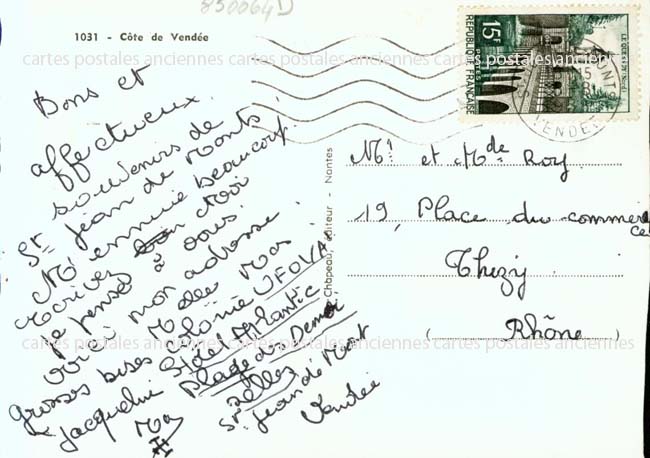 850064D
1031 - Côte de Vendée
cartes postales anciennes cartes postales anciennes cartes postales anciennes
Bons et
affectueux
souvenirs de
St Jean de Monts
M'ennuie beaucoup.
écrivez moi
je pense à vous.
voici mon adresse.
Grosses bises
Jacqueline
colonie UFOVAL
Hôtel Atlantic
Plage des Demoi
selles
St Jean de Mont
Vendée
Chapeau, éditeur - Nantes
15F
REPUBLIQUE FRANÇAISE
POSTES
LE QUESNOY
VENDEE
Mr et Mde Roy
19, Place du commer
ce
Thizy
(Rhône)
cartes postales anciennes cartes postales anciennes cartes postales anciennes